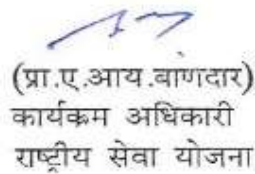 (प्रा.ए.आय.बाणदार)
कार्यक्रम अधिकारी
राष्ट्रीय सेवा योजना